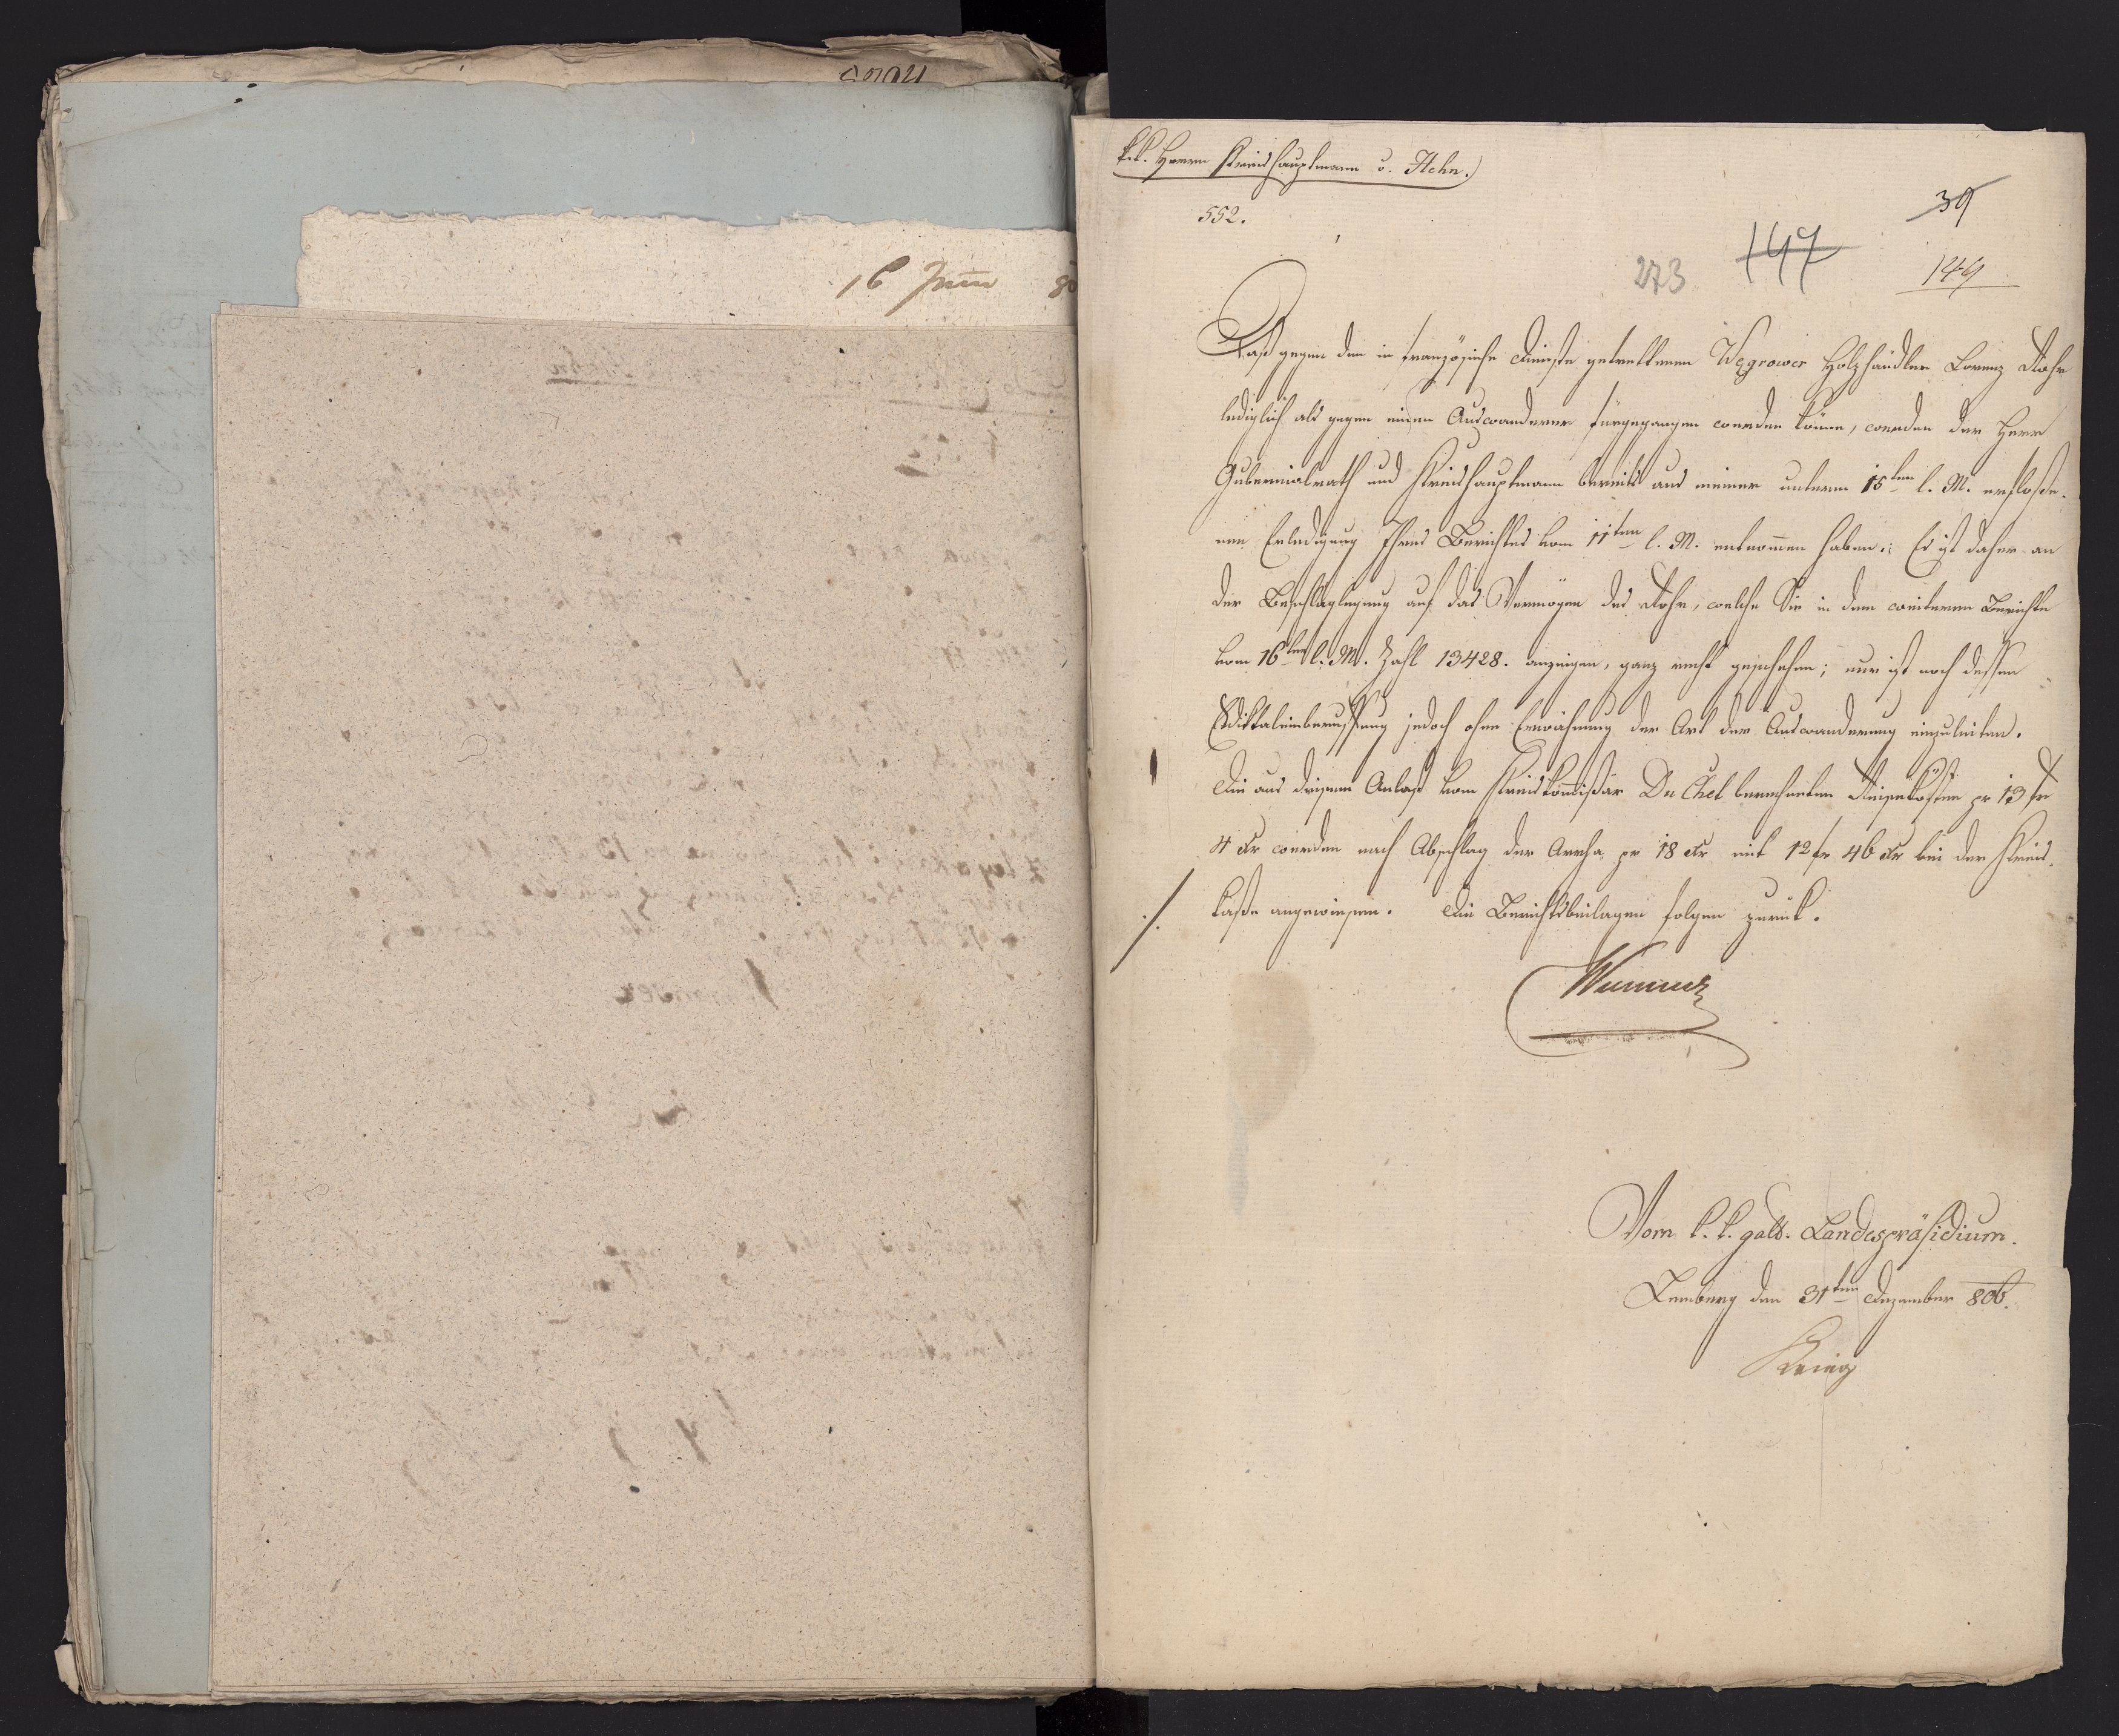 16 Juni 80
Tit. Herrn Kreishauptmann v. Hehn.
552.
39
147
273
149
Daß gegen den in französische Dienste getrettenen Węgrower Holzhändler Lorenz Rohr
lediglich als gegen einen Auswanderer fürgegangen werden könne, werden der Herr
Gubernialrath und Kreishauptmann bereits aus meiner unterm 15ten l. M. erfloße-
nen Erledigung Ihres Berichtes vom 11ten l. M. entnom̄en haben.; Es ist daher an
der Beschlaglegung auf das Vermögen des Rohr, welche Sie in dem weiteren Berichte
vom 16ten l. M. Zahl 13428. anzeigen, ganz recht geschehen; nur ist noch dessen
Ediktaleinberuffung jedoch ohne Erwähnung der Art der Auswanderung einzuleiten.
Die aus diesem Anlaß vom Kreiskom̄ißär Du Chet berechneten Reisekosten pr 13 fr
4 Xr werden nach Abschlag der Arrha pr 18 Xr mit 12 fr 46 Xr bei der Kreis-
kaße angewiesen. Die Berichtsbeilagen folgen zurük.
./.
Vom k. k. galiz. Landespräsidium.
Lemberg den 31ten Dezember 806.
Krieg